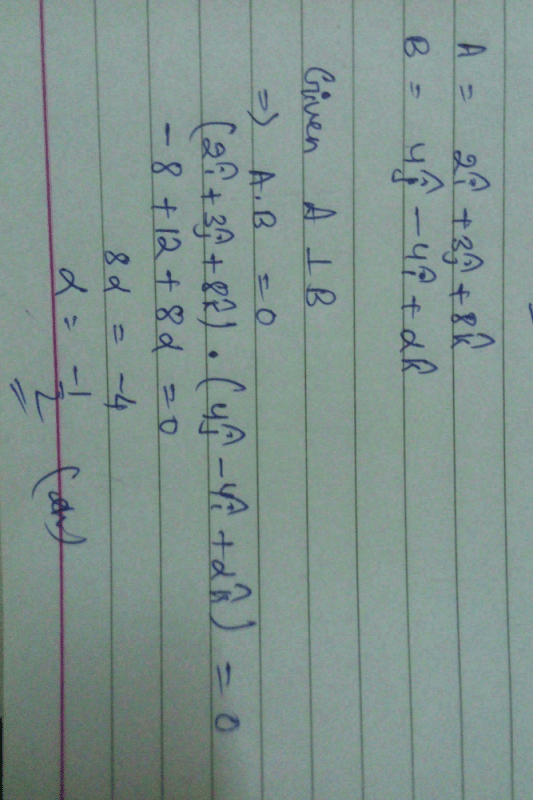 A = 2î + 3ĵ + 8k̂
B = 4ĵ - 4î + αk̂
Given A ⊥ B
=> A.B = 0
(2î + 3ĵ + 8k̂) . (4ĵ - 4î + αk̂) = 0
-8 + 12 + 8α = 0
8α = -4
α = -1/2 (Ans)